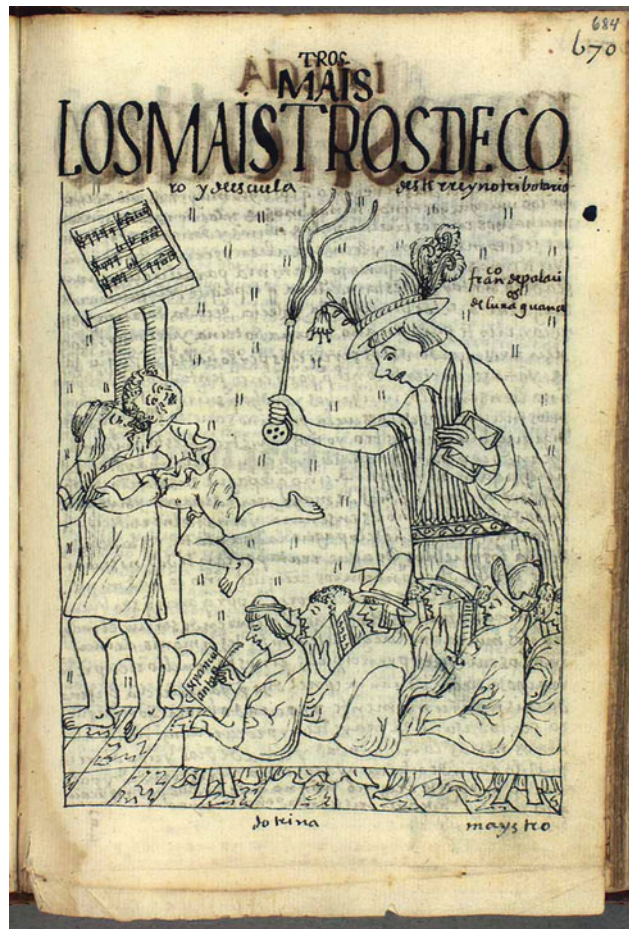 684
670
TROS
MAIS
LOS MAISTROS DE CO
ro y de escuela deste rreyno tributario
fran^co de palaui
de luna guança
dotrina maystro